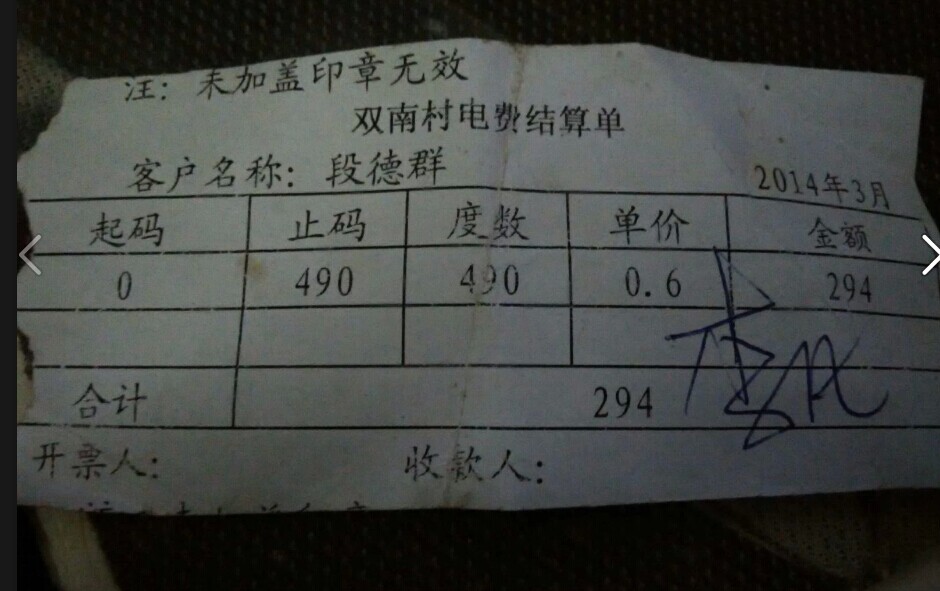 注：未加盖印章无效
双南村电费结算单
客户名称：段德群
2014年3月
起码 止码 度数 单价 金额
0 490 490 0.6 294
合计 294
开票人： 收款人：